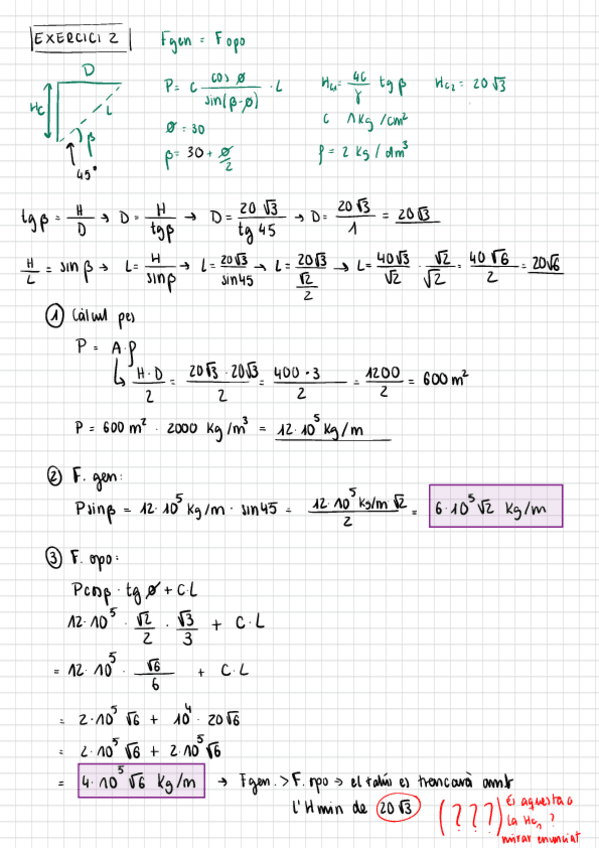 EXERCICI 2 Fgen = Fopo
D
Hc L β
45°
P = C cos ø / sin(β-ø) · L Hc₁ = 4C/γ tg β Hc₂ = 20√3
ø = 30 C 1Kg/cm²
β = 30 + ø/2 ρ = 2 Kg/dm³
tg β = H/D → D = H/tgβ → D = 20√3/tg 45 → D = 20√3/1 = 20√3
H/L = sin β → L = H/sinβ → L = 20√3/sin45 → L = 20√3/(√2/2) → L = 40√3/√2 · √2/√2 = 40√6/2 = 20√6
① Càlcul pes
P = A·ρ
↳ H·D/2 = 20√3·20√3/2 = 400·3/2 = 1200/2 = 600 m²
P = 600 m² · 2000 Kg/m³ = 12·10⁵ Kg/m
② F. gen:
P sinβ = 12·10⁵ Kg/m · sin45 = 12·10⁵ Kg/m·√2/2 = 6·10⁵√2 Kg/m
③ F. opo:
P cosβ · tg ø + C·L
12·10⁵ · √2/2 · √3/3 + C·L
= 12·10⁵ · √6/6 + C·L
= 2·10⁵ √6 + 10⁴ · 20√6
= 2·10⁵ √6 + 2·10⁵√6
= 4·10⁵ √6 Kg/m → Fgen. > F. opo → el talús es trencarà amb
l'Hmin de 20√3 (???) És aquesta o
la Hc₁?
mirar enunciat